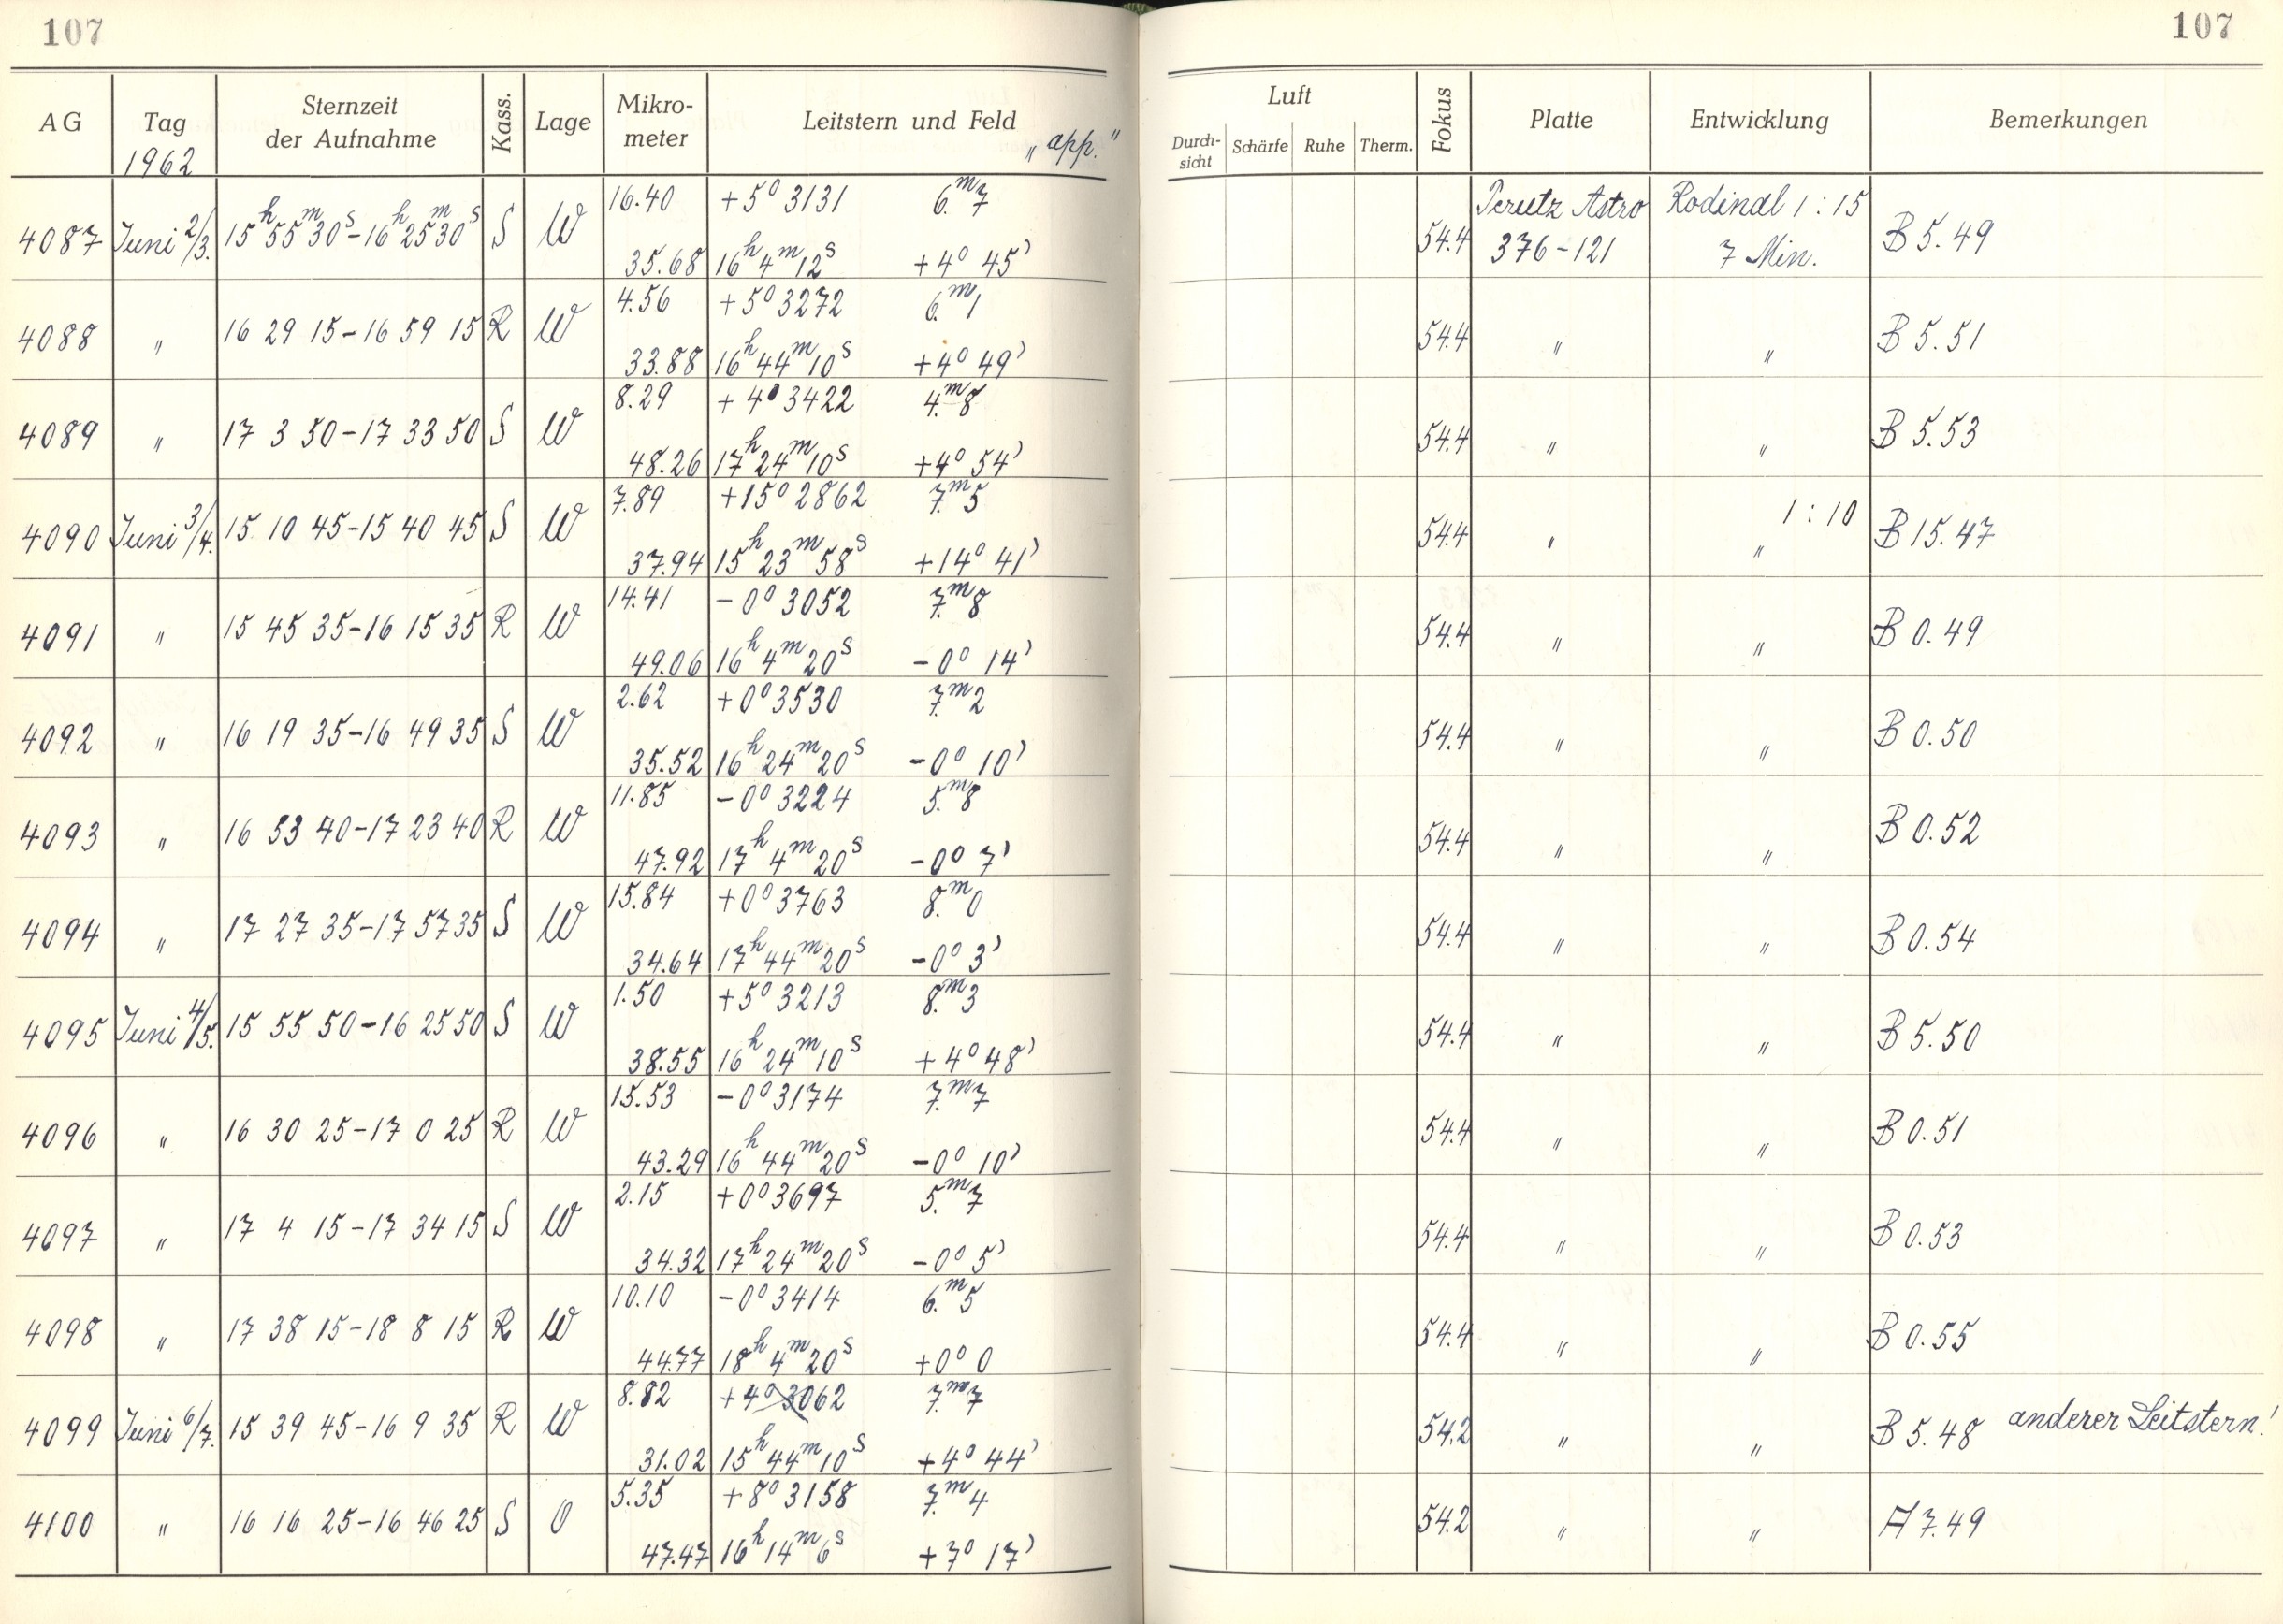 107
107
AG Tag Sternzeit der Aufnahme Kass. Lage Mikro-meter Leitstern und Feld Luft Durch-sicht Schärfe Ruhe Therm. Fokus Platte Entwicklung Bemerkungen
1962 "app."
16.40 +5° 3131 6.ᵐ7 Perutz Astro Rodinal 1:15
4087 Juni 2/3. 15ʰ55ᵐ30ˢ-16ʰ25ᵐ30ˢ S W 54.4 376-121 7 Min. B 5.49
35.68 16ʰ4ᵐ12ˢ +4° 45'
4.56 +5° 3272 6.ᵐ1
4088 " 16 29 15-16 59 15 R W 54.4 " " B 5.51
33.88 16ʰ44ᵐ10ˢ +4° 49'
8.29 +4° 3422 4.ᵐ8
4089 " 17 3 50-17 33 50 S W 54.4 " " B 5.53
48.26 17ʰ24ᵐ10ˢ +4° 54'
7.89 +15° 2862 7.ᵐ5 1:10
4090 Juni 3/4. 15 10 45-15 40 45 S W 54.4 " " B 15.47
37.94 15ʰ23ᵐ58ˢ +14° 41'
14.41 -0° 3052 7.ᵐ8
4091 " 15 45 35-16 15 35 R W 54.4 " " B 0.49
49.06 16ʰ4ᵐ20ˢ -0° 14'
2.62 +0° 3530 7.ᵐ2
4092 " 16 19 35-16 49 35 S W 54.4 " " B 0.50
35.52 16ʰ24ᵐ20ˢ -0° 10'
11.85 -0° 3224 5.ᵐ8
4093 " 16 53 40-17 23 40 R W 54.4 " " B 0.52
47.92 17ʰ4ᵐ20ˢ -0° 7'
15.84 +0° 3763 8.ᵐ0
4094 " 17 27 35-17 57 35 S W 54.4 " " B 0.54
34.64 17ʰ44ᵐ20ˢ -0° 3'
1.50 +5° 3213 8.ᵐ3
4095 Juni 4/5. 15 55 50-16 25 50 S W 54.4 " " B 5.50
38.55 16ʰ24ᵐ10ˢ +4° 48'
15.53 -0° 3174 7.ᵐ7
4096 " 16 30 25-17 0 25 R W 54.4 " " B 0.51
43.29 16ʰ44ᵐ20ˢ -0° 10'
2.15 +0° 3697 5.ᵐ7
4097 " 17 4 15-17 34 15 S W 54.4 " " B 0.53
34.32 17ʰ24ᵐ20ˢ -0° 5'
10.10 -0° 3414 6.ᵐ5
4098 " 17 38 15-18 8 15 R W 54.4 " " B 0.55
44.77 18ʰ4ᵐ20ˢ +0° 0
8.82 +4° 3062 7.ᵐ7
4099 Juni 6/7. 15 39 45-16 9 35 R W 54.2 " " B 5.48 anderer Leitstern!
31.02 15ʰ44ᵐ10ˢ +4° 44'
5.35 +8° 3158 7.ᵐ4
4100 " 16 16 25-16 46 25 S O 54.2 " " A 7.49
47.47 16ʰ14ᵐ6ˢ +7° 17'